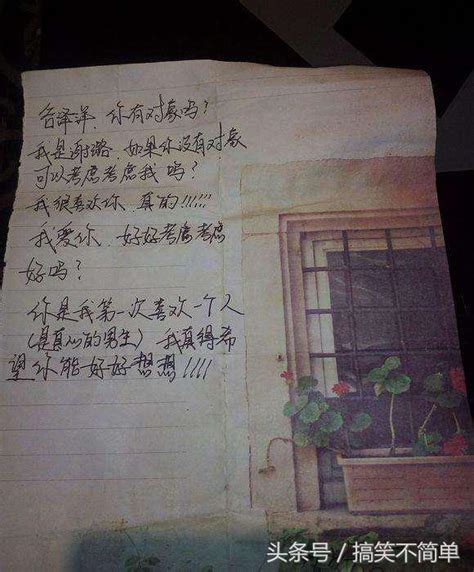 合泽洋,你有对象吗?
我是谢璐,如果你没有对象
可以考虑考虑我吗?
我很喜欢你,真的!!!!!!
我爱你,好好考虑考虑
好吗?
你是我第一次喜欢一个人
(是真心的男生) 我真得希
望你能好好想想!!!!
头条号/搞笑不简单